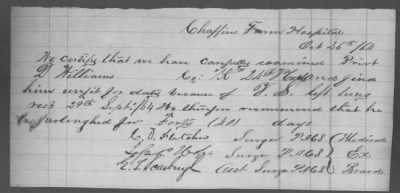 Chaffins Farm Hospital
Oct 26th /64
We certify that we have carefully examined Privt
D. Williams Co: "K" 24th and find
him unfit for duty because of left lung
recd 29th Sept/64 We therefore recommend that he
be furloughed for Forty (40) days
C. D. Fletcher Surge P.A.C.S. Medical
Surge P.A.C.S. Ex
Asst Surge P.A.C.S. Board